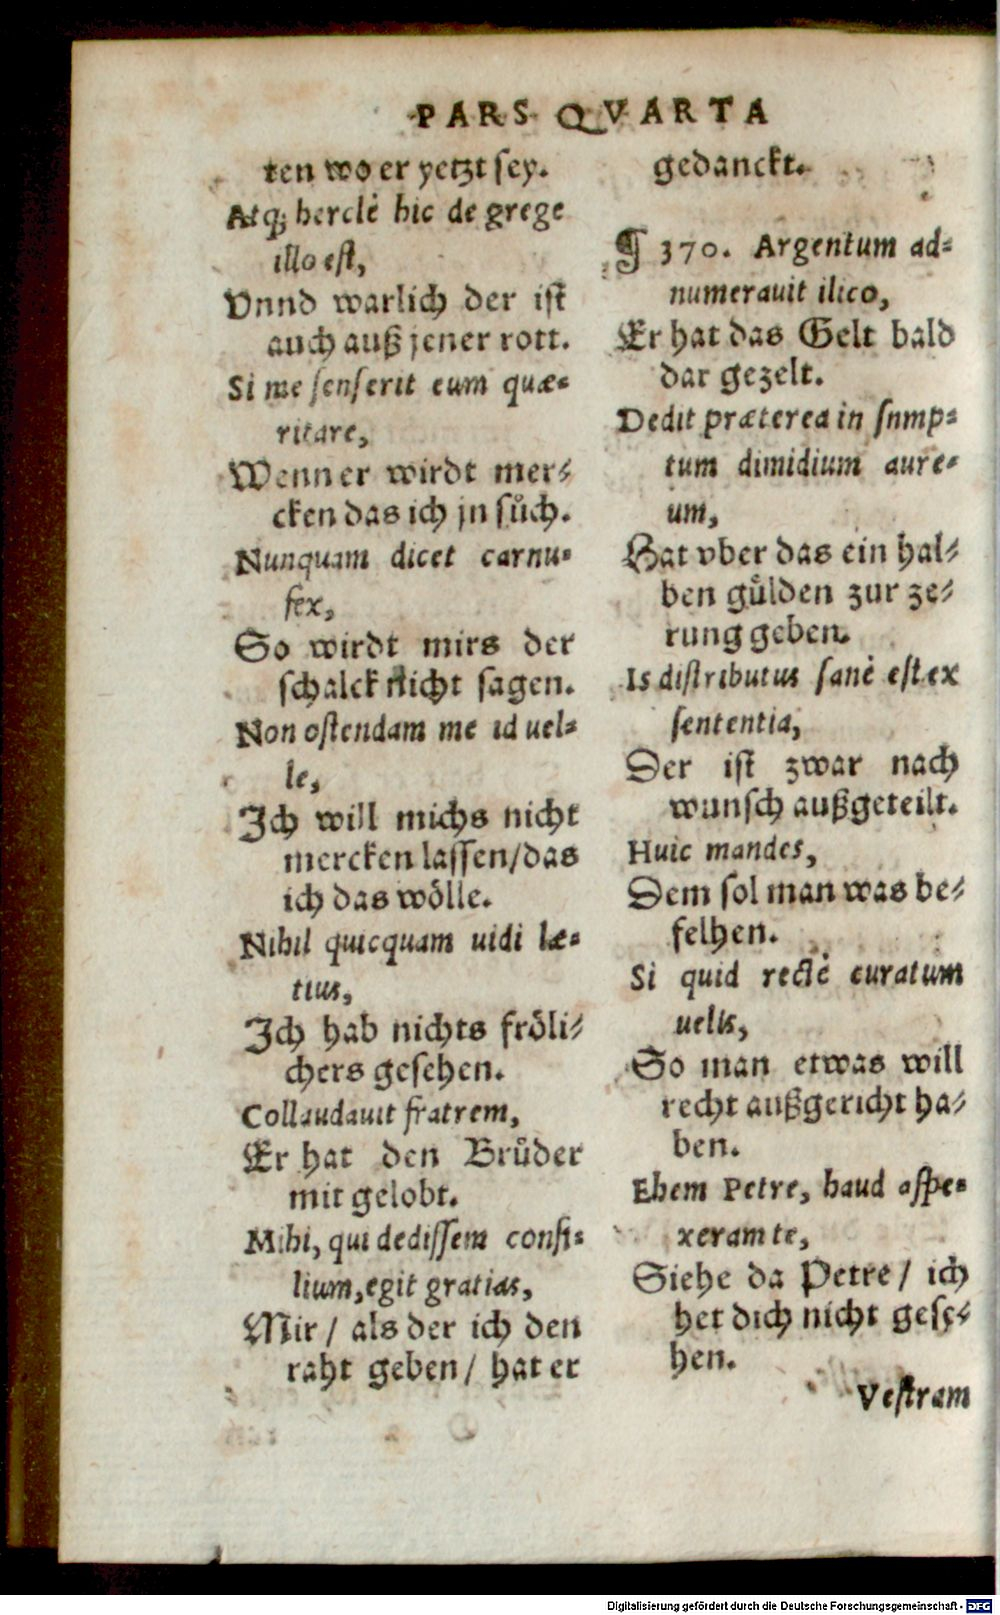 PARS QVARTA
ten wo er yetzt sey.
Atq; herclè hic de grege
illo est,
Vnnd warlich der ist
auch auß jener rott.
Si me senserit eum quæ-
ritare,
Wenn er wirdt mer-
cken das ich jn sůch.
Nunquam dicet carnu-
fex,
So wirdt mirs der
schalck nicht sagen.
Non ostendam me id uel-
le,
Ich will michs nicht
mercken lassen/das
ich das wölle.
Nihil quicquam uidi læ-
tius,
Ich hab nichts fröli-
chers gesehen.
Collaudauit fratrem,
Er hat den Brůder
mit gelobt.
Mihi, qui dedissem consi-
lium, egit gratias,
Mir / als der ich den
raht geben / hat er
gedanckt.
¶ 370. Argentum ad-
numerauit ilico,
Er hat das Gelt bald
dar gezelt.
Dedit præterea in snmp-
tum dimidium aure-
um,
Hat vber das ein hal-
ben gůlden zur ze-
rung geben.
Is distributus sanè est ex
sententia,
Der ist zwar nach
wunsch außgeteilt.
Huic mandes,
Dem sol man was be-
felhen.
Si quid rectè curatum
uelis,
So man etwas will
recht außgericht ha-
ben.
Ehem Petre, haud aspe-
xeram te,
Siehe da Petre / ich
het dich nicht gese-
hen.
Vestram
Digitalisierung gefördert durch die Deutsche Forschungsgemeinschaft - DFG